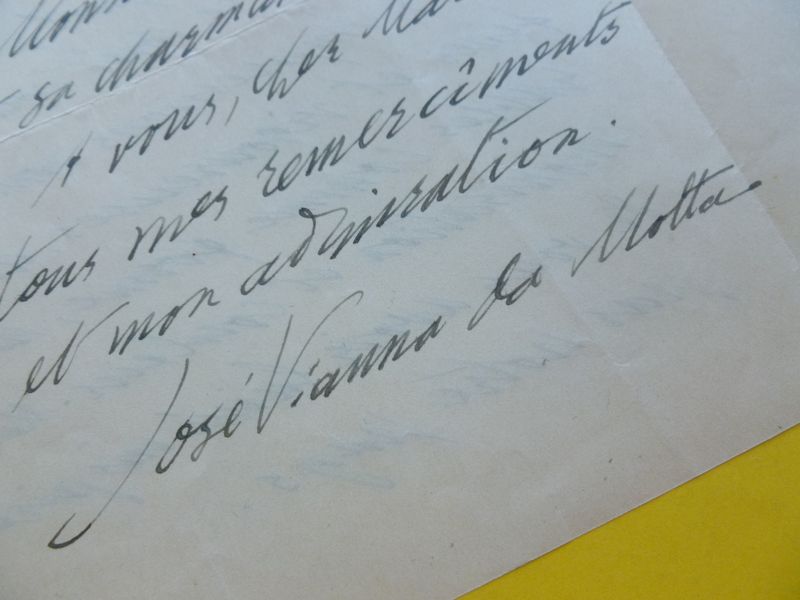 sa charman
A vous, cher Ma
tous mes remercîments
et mon admiration.
José Vianna da Motta